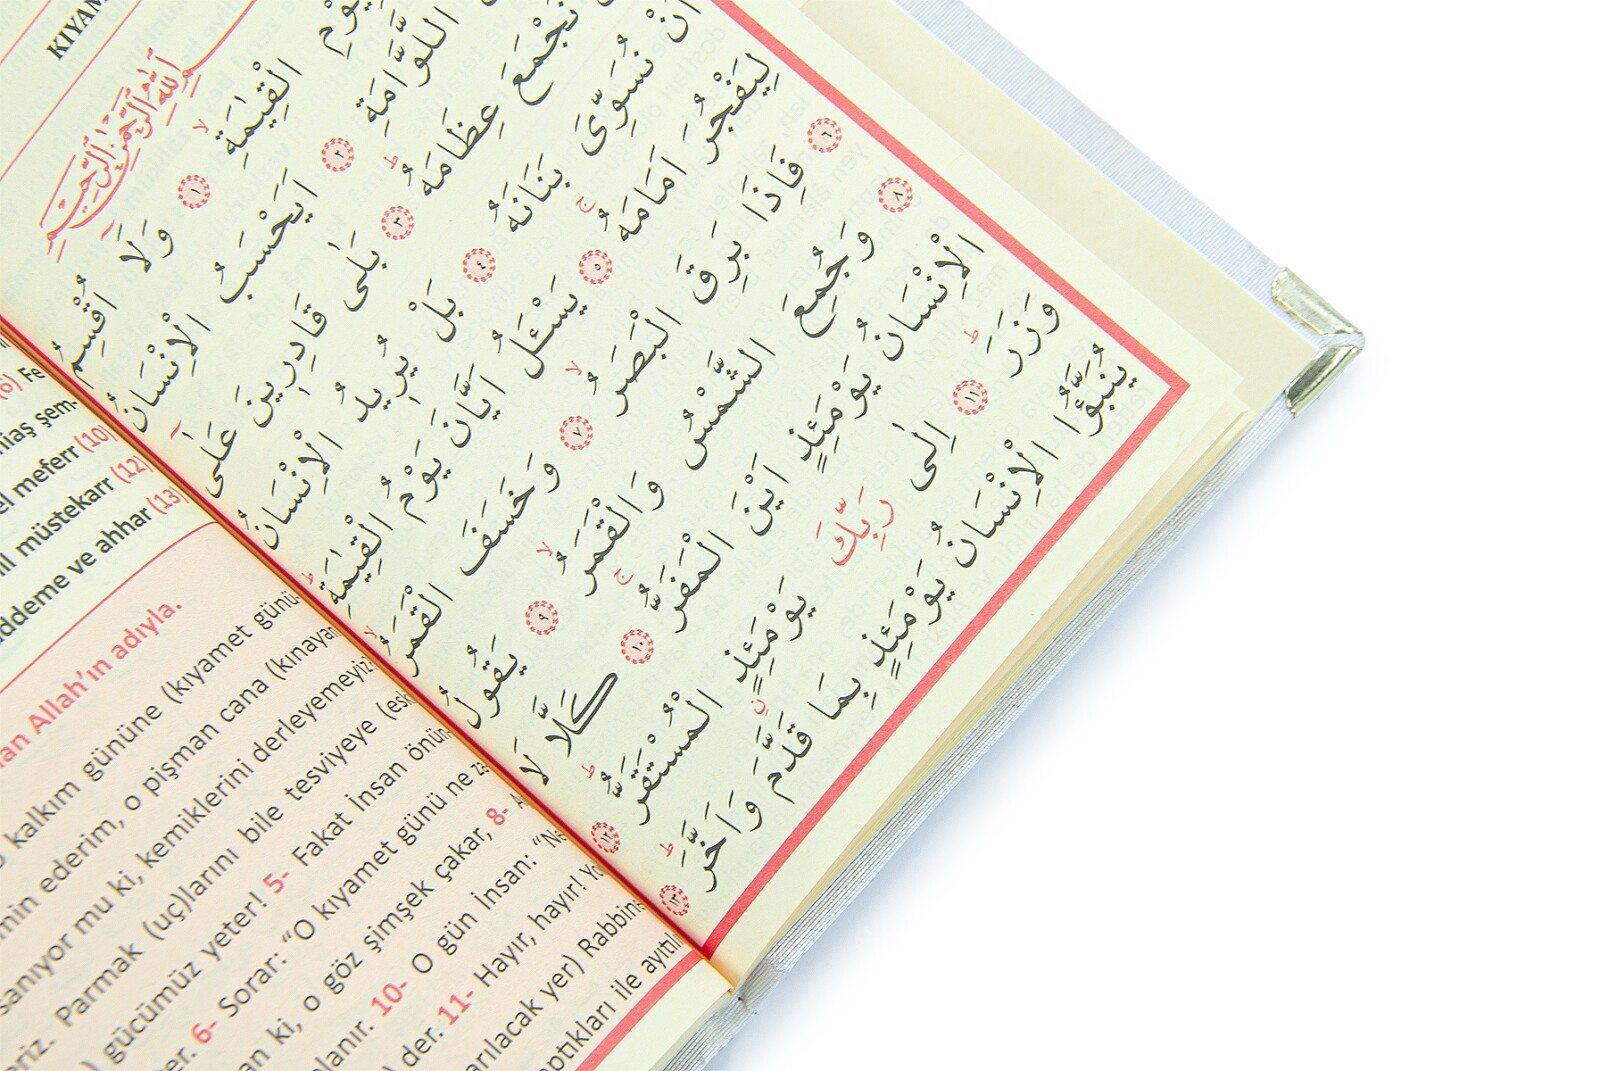 بِسْمِ اللّٰهِ الرَّحْمٰنِ الرَّحِيمِ
الْقِيٰمَةِۙ ١ وَلَٓا اُقْسِمُ
اللَّوَّامَةِ ٢ اَيَحْسَبُ الْاِنْسَانُ
نَجْمَعَ عِظَامَهُۜ ٣ بَلٰى قَادِرِينَ عَلٰٓى
اَنْ نُسَوِّىَ بَنَانَهُ ٤ بَلْ يُرِيدُ الْاِنْسَانُ
لِيَفْجُرَ اَمَامَهُۚ ٥ يَسْـَٔلُ اَيَّانَ يَوْمُ الْقِيٰمَةِۜ
٦ فَاِذَا بَرِقَ الْبَصَرُۙ ٧ وَخَسَفَ الْقَمَرُۙ
٨ وَجُمِعَ الشَّمْسُ وَالْقَمَرُۙ ٩ يَقُولُ
الْاِنْسَانُ يَوْمَئِذٍ اَيْنَ الْمَفَرُّۚ ١٠ كَلَّا لَا
وَزَرَۜ ١١ اِلٰى رَبِّكَ يَوْمَئِذٍ الْمُسْتَقَرُّۜ ١٢
يُنَبَّؤُا الْاِنْسَانُ يَوْمَئِذٍ بِمَا قَدَّمَ وَاَخَّرَۜ ١٣
(6) Fe
şem.
el meferr (10)
müstekarr (12)
ve ahhar (13)
Allah'ın adıyla.
kalkım gününe (kıyamet günü-
ederim, o pişman cana (kınayan
mu ki, kemiklerini derleyemeyiz
Parmak (uç)larını bile tesviyeye
gücümüz yeter! 5- Fakat insan
6- Sorar: “O kıyamet günü ne
ki, o göz şimşek çakar, 8-
10- O gün insan: “Ne
der. 11- Hayır, hayır!
yer) Rabbine
ile